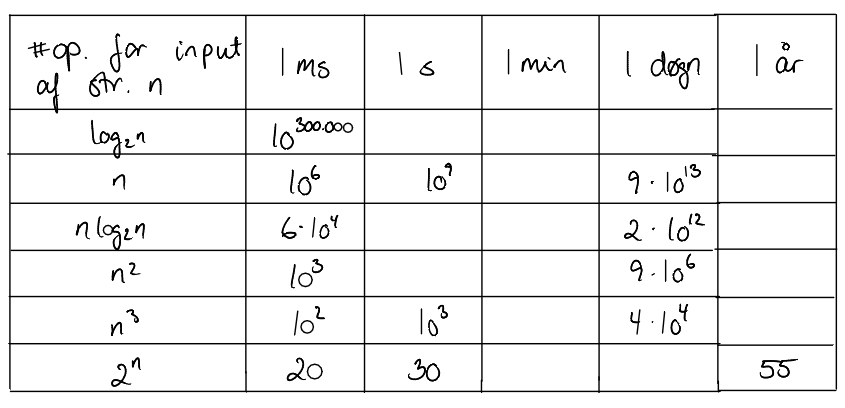 #op. for input af str. n | 1 ms | 1 s | 1 min | 1 døgn | 1 år
log₂n | 10³⁰⁰·⁰⁰⁰ | | | |
n | 10⁶ | 10⁹ | | 9 · 10¹³ |
n log₂n | 6·10⁴ | | | 2 · 10¹² |
n² | 10³ | | | 9·10⁶ |
n³ | 10² | 10³ | | 4·10⁴ |
2ⁿ | 20 | 30 | | | 55